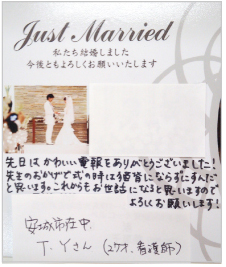 Just Married
私たち結婚しました
今後ともよろしくお願いいたします
先日はかわいい電報をありがとうございました!
先生のおかげで式の時は猫背にならずにすんだ
と思います。これからもお世話になると思いますので
よろしくお願いします!
安城市在中
T.Yさん(27才、看護師)